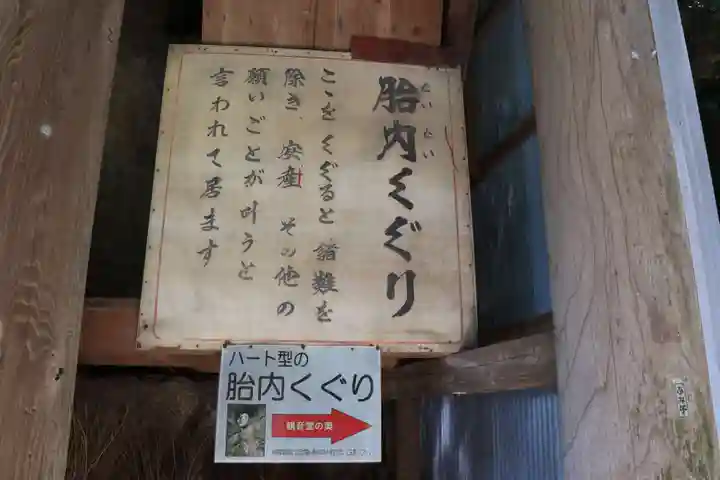 胎内くぐり
たいない
こゝをくぐると諸難を
除き、安産その他の
願いごとが叶うと
言われて居ます
ハート型の
胎内くぐり
観音堂の奥